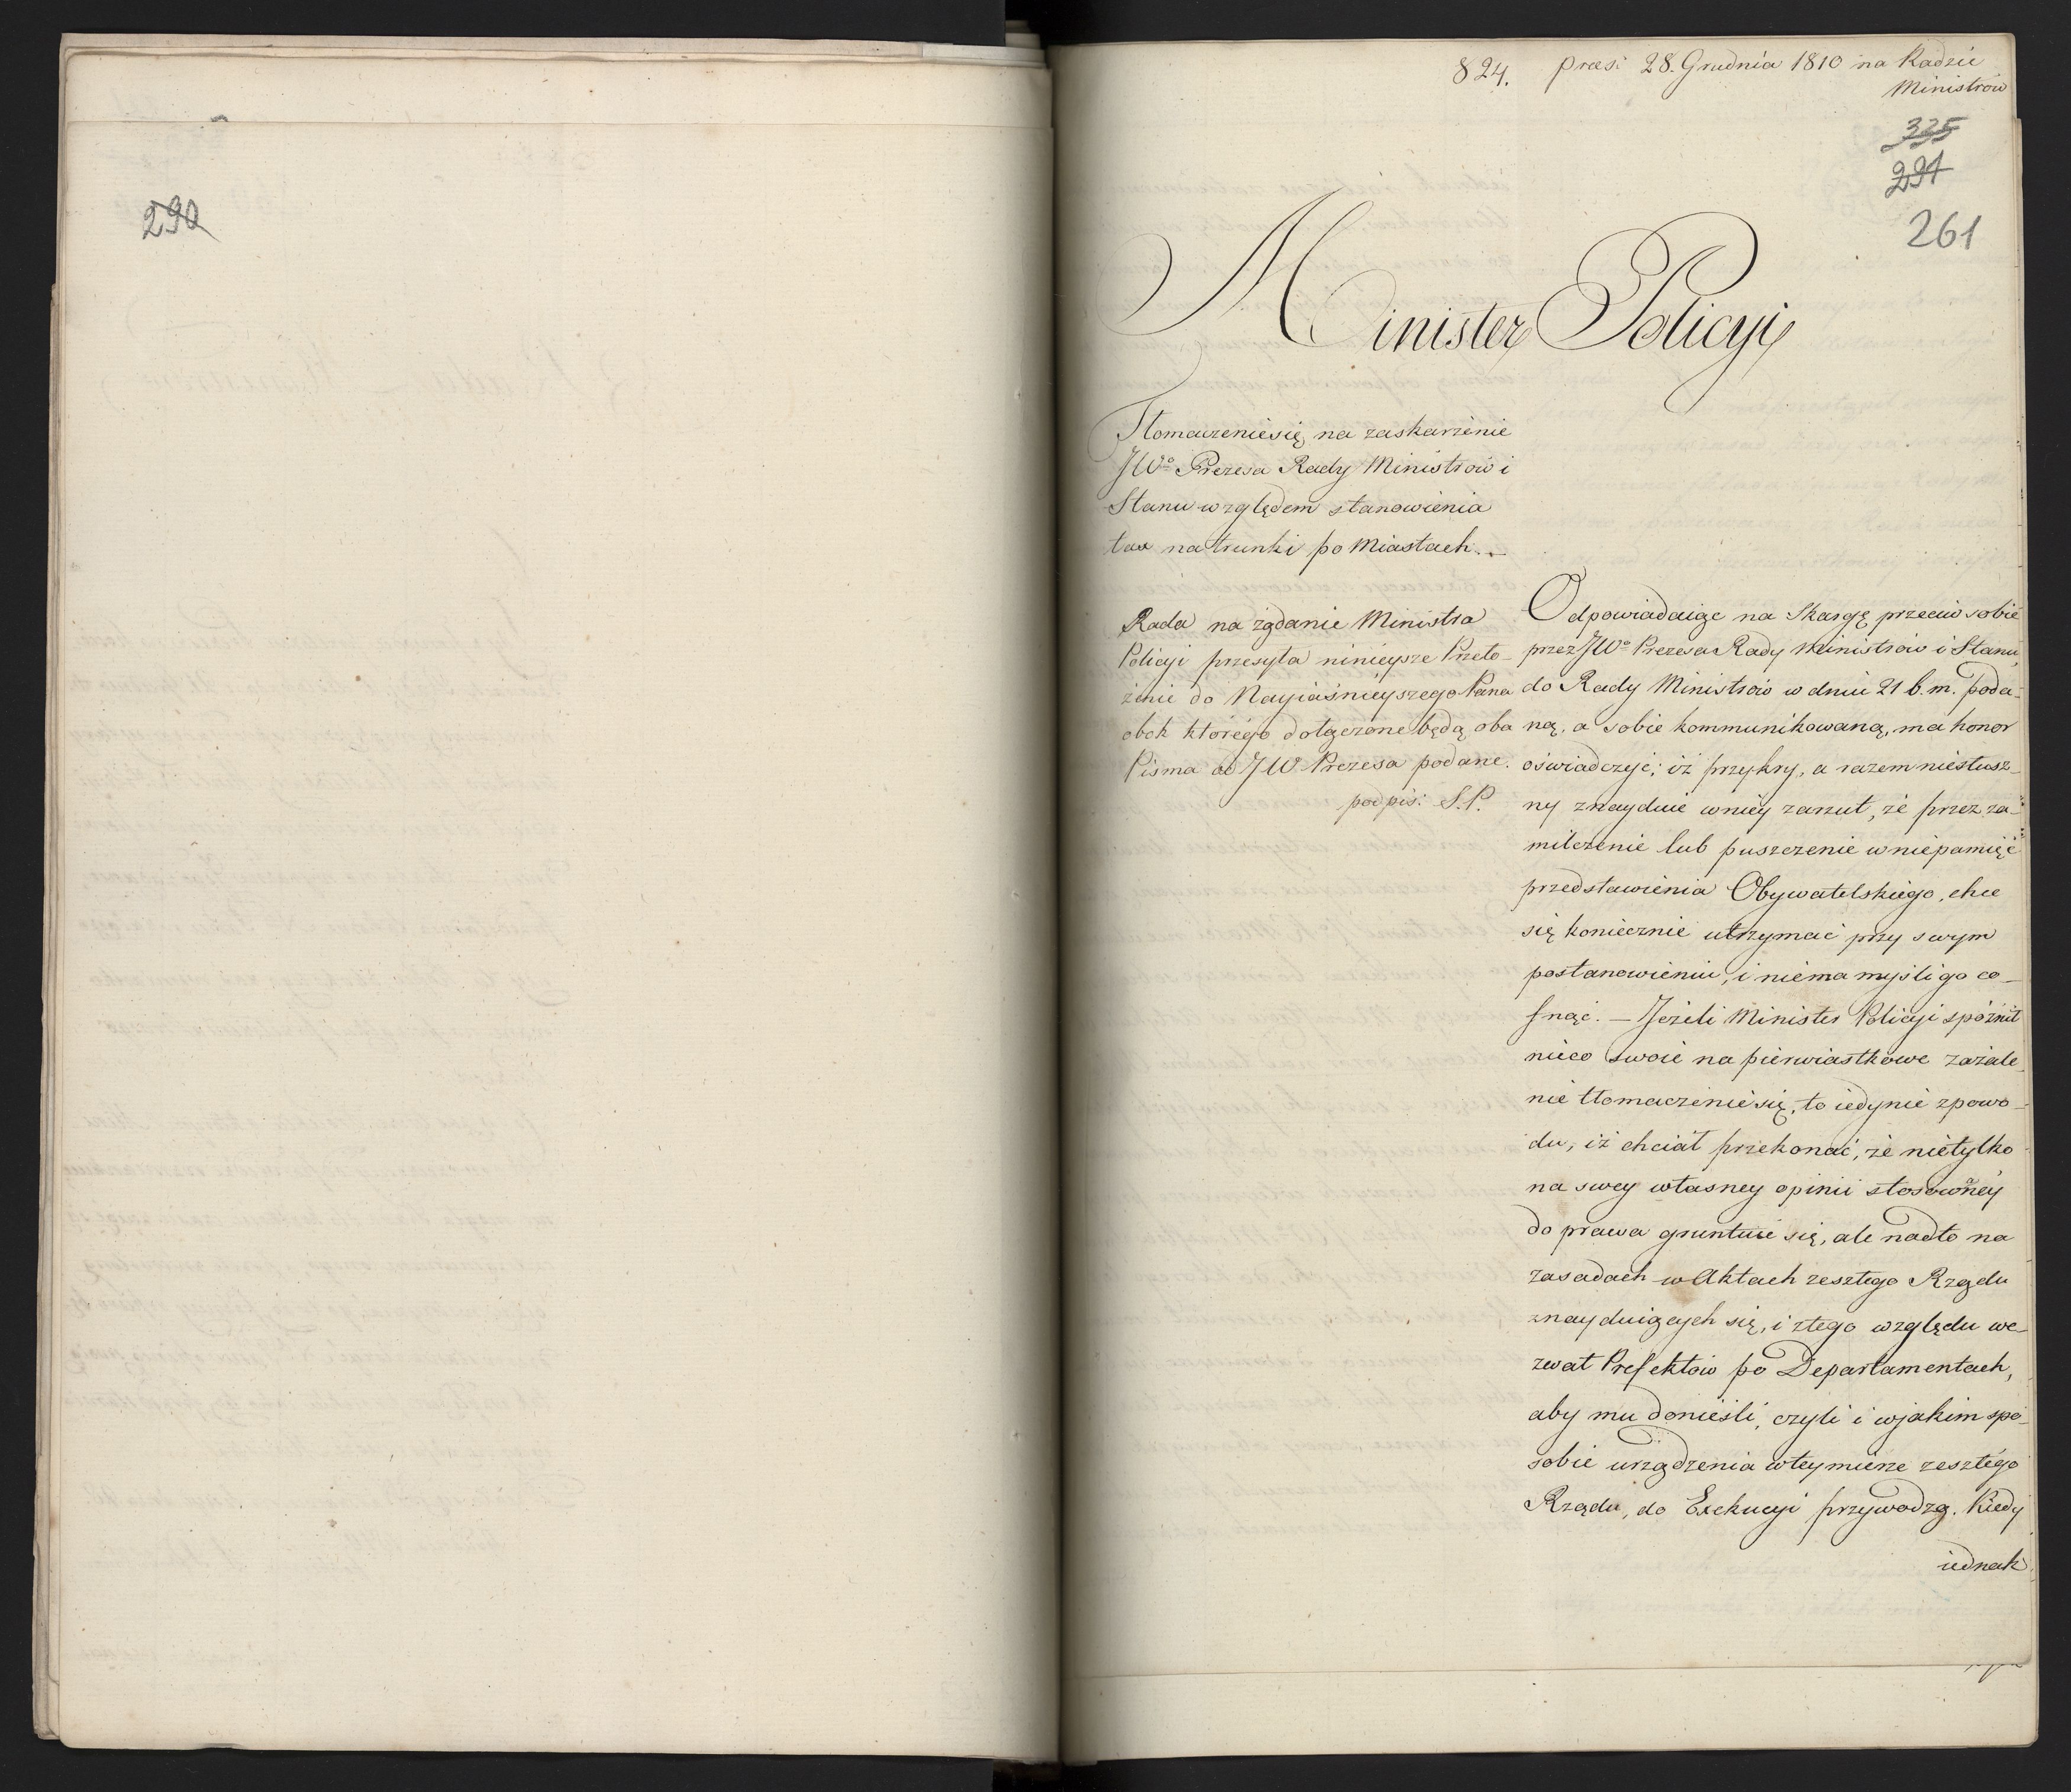 290
824. praes: 28. Grudnia 1810 na Radzie
Ministrów
335
291
261
Minister Policyi
Tłomaczenie się na zaskarżenie
JWgo Prezesa Rady Ministrów i
Stanu względem stanowienia
tax na trunki po Miastach.
Rada na żądanie Ministra
Policyi przesyła ninieysze Przeło-
żenie do Nayiaśnieyszego Pana
obok którego dołączone będą oba
Pisma od JW Prezesa podane.
podpis: S. P.
Odpowiadaiąc na Skargę przeciw sobie
przez JWo Prezesa Rady Ministrów i Stanu,
do Rady Ministrów w dniu 21 b. m. poda-
ną, a sobie kommunikowaną, ma honor
oświadczyć; iż przykry, a razem niesłusz-
ny znayduie w niey zarzut, że przez za-
milczenie lub puszczenie w niepamięć
przedstawienia Obywatelskiego, chce
się koniecznie utrzymać przy swym
postanowieniu, i niema myśli go co-
fnąć. – Jeżeli Minister Policyi spóźnił
nieco swoie na pierwiastkowe zażale-
nie tłomaczenie się, to iedynie z powo-
du, iż chciał przekonać, że nietylko
na swey własney opinii stosowney
do prawa gruntuie się, ale nadto na
zasadach w Aktach zeszłego Rządu
znayduiących się, i z tego względu we-
zwał Prefektów po Departamentach,
aby mu donieśli, czyli i w jakim spo-
sobie urządzenia w tey mierze zeszłego
Rządu, do Exekucyi przywodzą. Kiedy
iednak